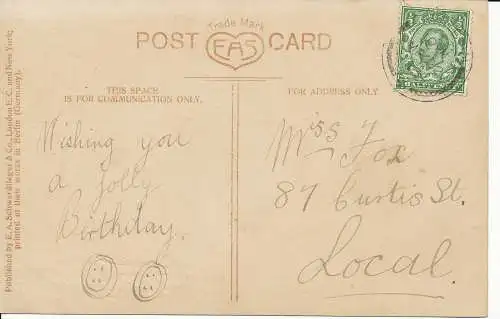 Trade Mark
POST EAS CARD
THIS SPACE
IS FOR COMMUNICATION ONLY.
FOR ADDRESS ONLY
Wishing you
a jolly
Birthday.
Miss Fox
87 Curtis St.
Local
Published by E. A. Schwerdtfeger & Co., London E. C. and New York;
printed at their works in Berlin (Germany).
HALFPENNY